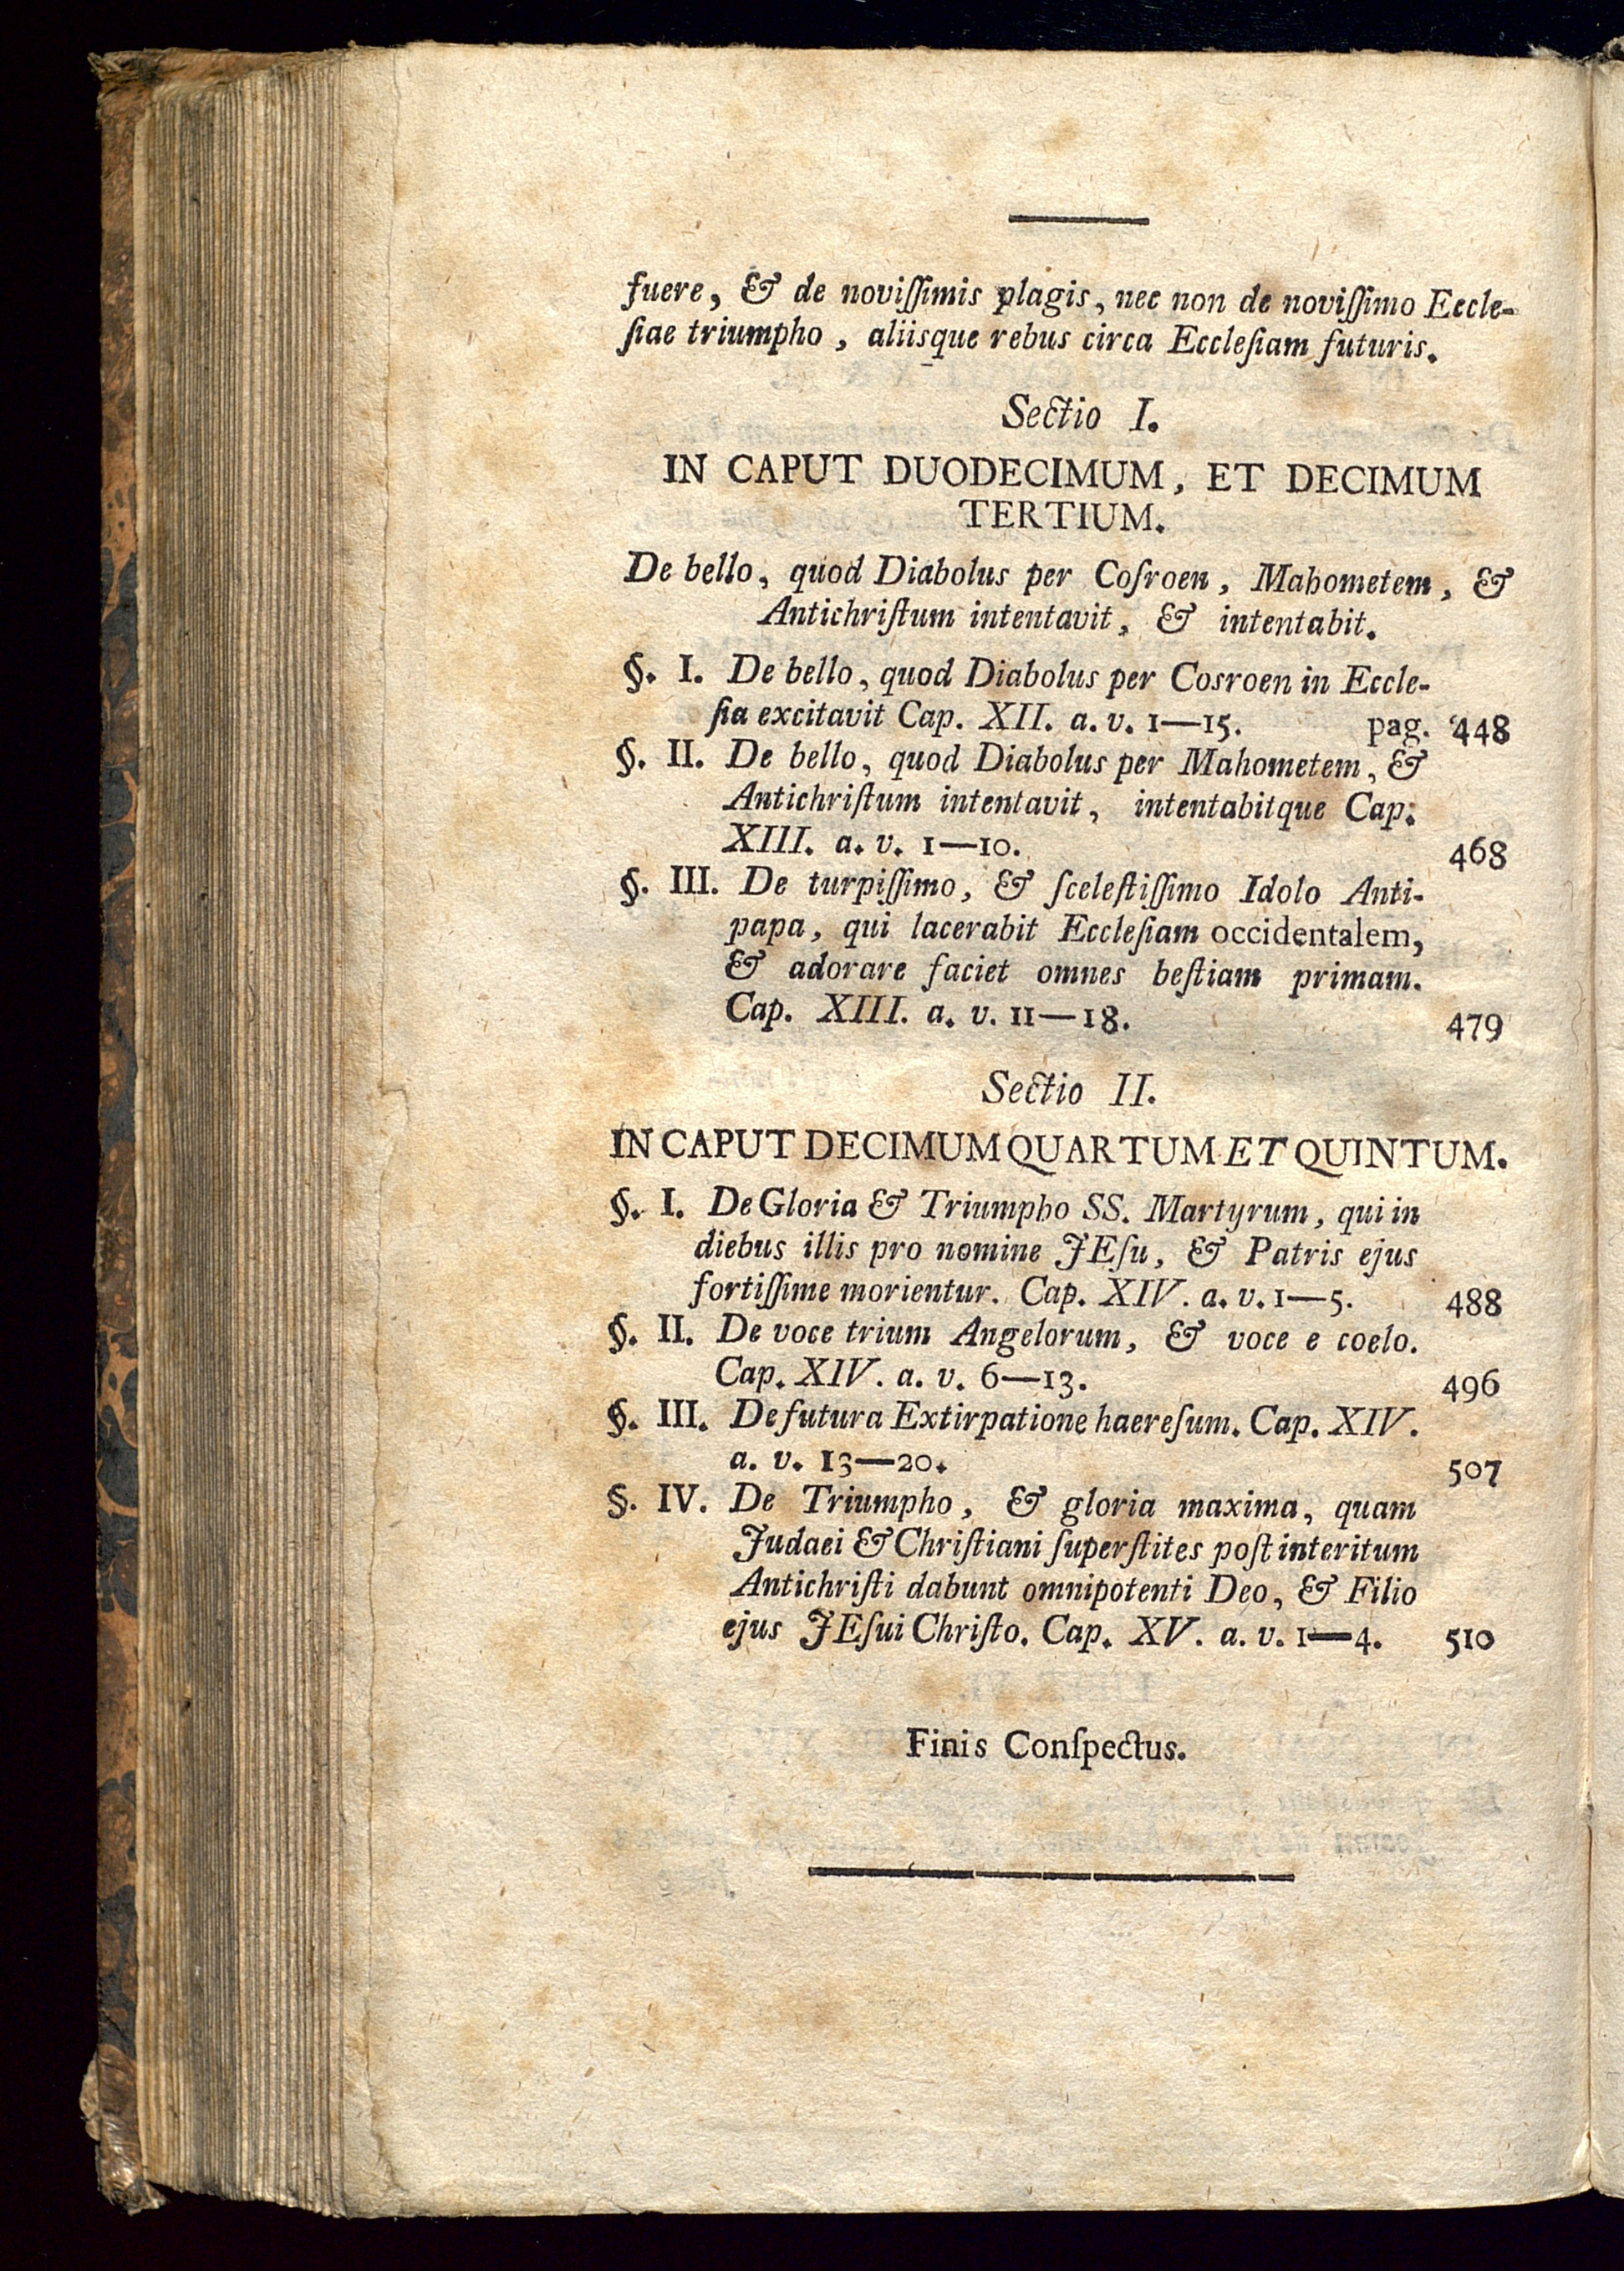 fuere, & de noviſſimis plagis, nec non de noviſſimo Eccle-
ſiae triumpho, aliisque rebus circa Eccleſiam futuris.
Sectio I.
IN CAPUT DUODECIMUM, ET DECIMUM
TERTIUM.
De bello, quod Diabolus per Coſroen, Mahometem, &
Antichriſtum intentavit, & intentabit.
§. I. De bello, quod Diabolus per Cosroen in Eccle-
ſia excitavit Cap. XII. a. v. 1—15. pag. 448
§. II. De bello, quod Diabolus per Mahometem, &
Antichriſtum intentavit, intentabitque Cap.
XIII. a. v. 1—10. 468
§. III. De turpiſſimo, & ſceleſtiſſimo Idolo Anti-
papa, qui lacerabit Eccleſiam occidentalem,
& adorare faciet omnes beſtiam primam.
Cap. XIII. a. v. 11—18. 479
Sectio II.
IN CAPUT DECIMUM QUARTUM ET QUINTUM.
§. I. De Gloria & Triumpho SS. Martyrum, qui in
diebus illis pro nomine JEſu, & Patris ejus
fortiſſime morientur. Cap. XIV. a. v. 1—5. 488
§. II. De voce trium Angelorum, & voce e coelo.
Cap. XIV. a. v. 6—13. 496
§. III. De futura Extirpatione haereſum. Cap. XIV.
a. v. 13—20. 507
§. IV. De Triumpho, & gloria maxima, quam
Judaei & Chriſtiani ſuperſtites poſt interitum
Antichriſti dabunt omnipotenti Deo, & Filio
ejus JEſui Chriſto. Cap. XV. a. v. 1—4. 510
Finis Conſpectus.